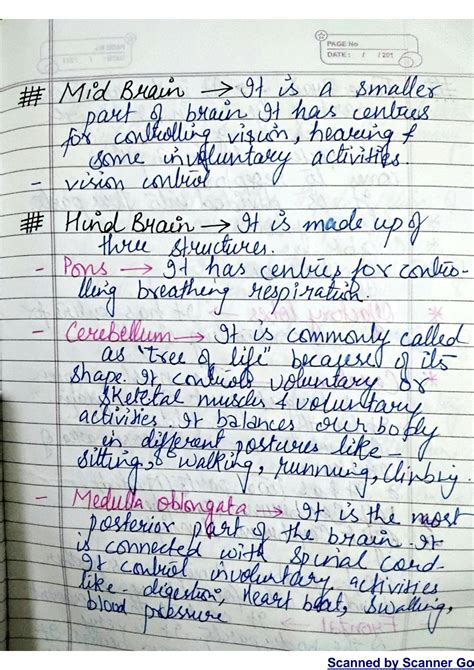 PAGE No
DATE: / /201
## Mid Brain → It is a smaller
part of brain It has centres
for controlling vision, hearing &
some involuntary activities.
- vision control
## Hind Brain → It is made up of
three structures.
- Pons → It has centries for contro-
lling breathing respiration.
- Cerebellum → It is commonly called
as "tree of life" because of its
shape. It controls voluntary or
skeletal muscles & voluntary
activities. It balances our body
in different postures like -
sitting, walking, running, climbing.
- Medulla oblongata → It is the most
posterior part of the brain. It
is connected with spinal cord.
It control involuntary activities
like - digestion, heart beat, swalling,
blood pressure
Scanned by Scanner Go